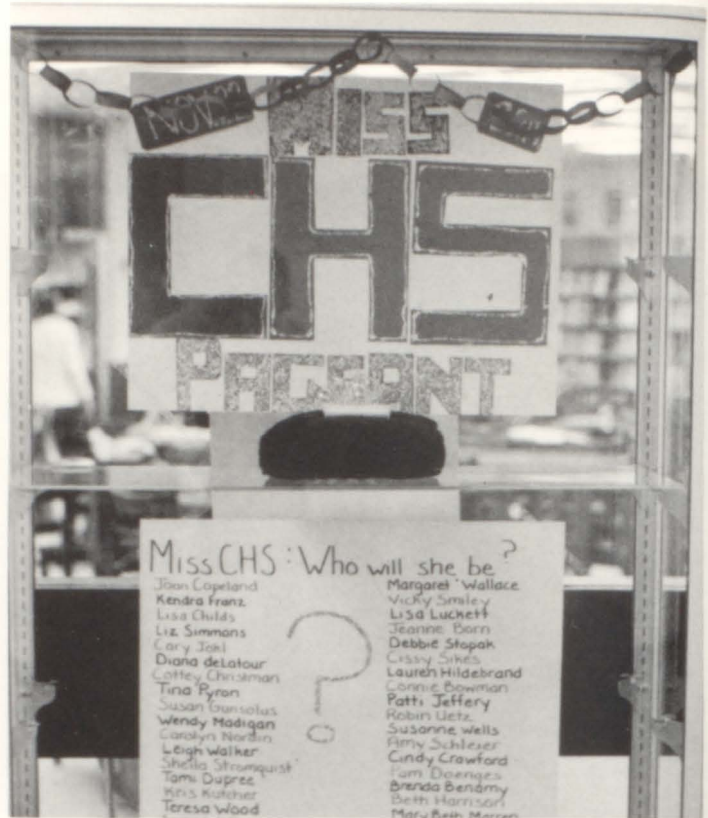 NOV. 22
MISS
CHS
PAGEANT
Miss CHS: Who will she be?
Joan Copeland
Kendra Franz
Lisa Childs
Liz Simmons
Cary Johl
Diana deLatour
Cottey Christman
Tina Pyron
Susan Gunsolus
Wendy Madigan
Carolyn Nordin
Leigh Walker
Sheila Stromquist
Tami Dupree
Kris Kutcher
Teresa Wood
?
Margaret Wallace
Vicky Smiley
Lisa Luckett
Jeanne Born
Debbie Stopak
Cissy Sikes
Lauren Hildebrand
Connie Bowman
Patti Jeffery
Robin Uetz
Susanne Wells
Amy Schleier
Cindy Crawford
Pam Doenges
Brenda Benamy
Beth Harrison
Mary Beth